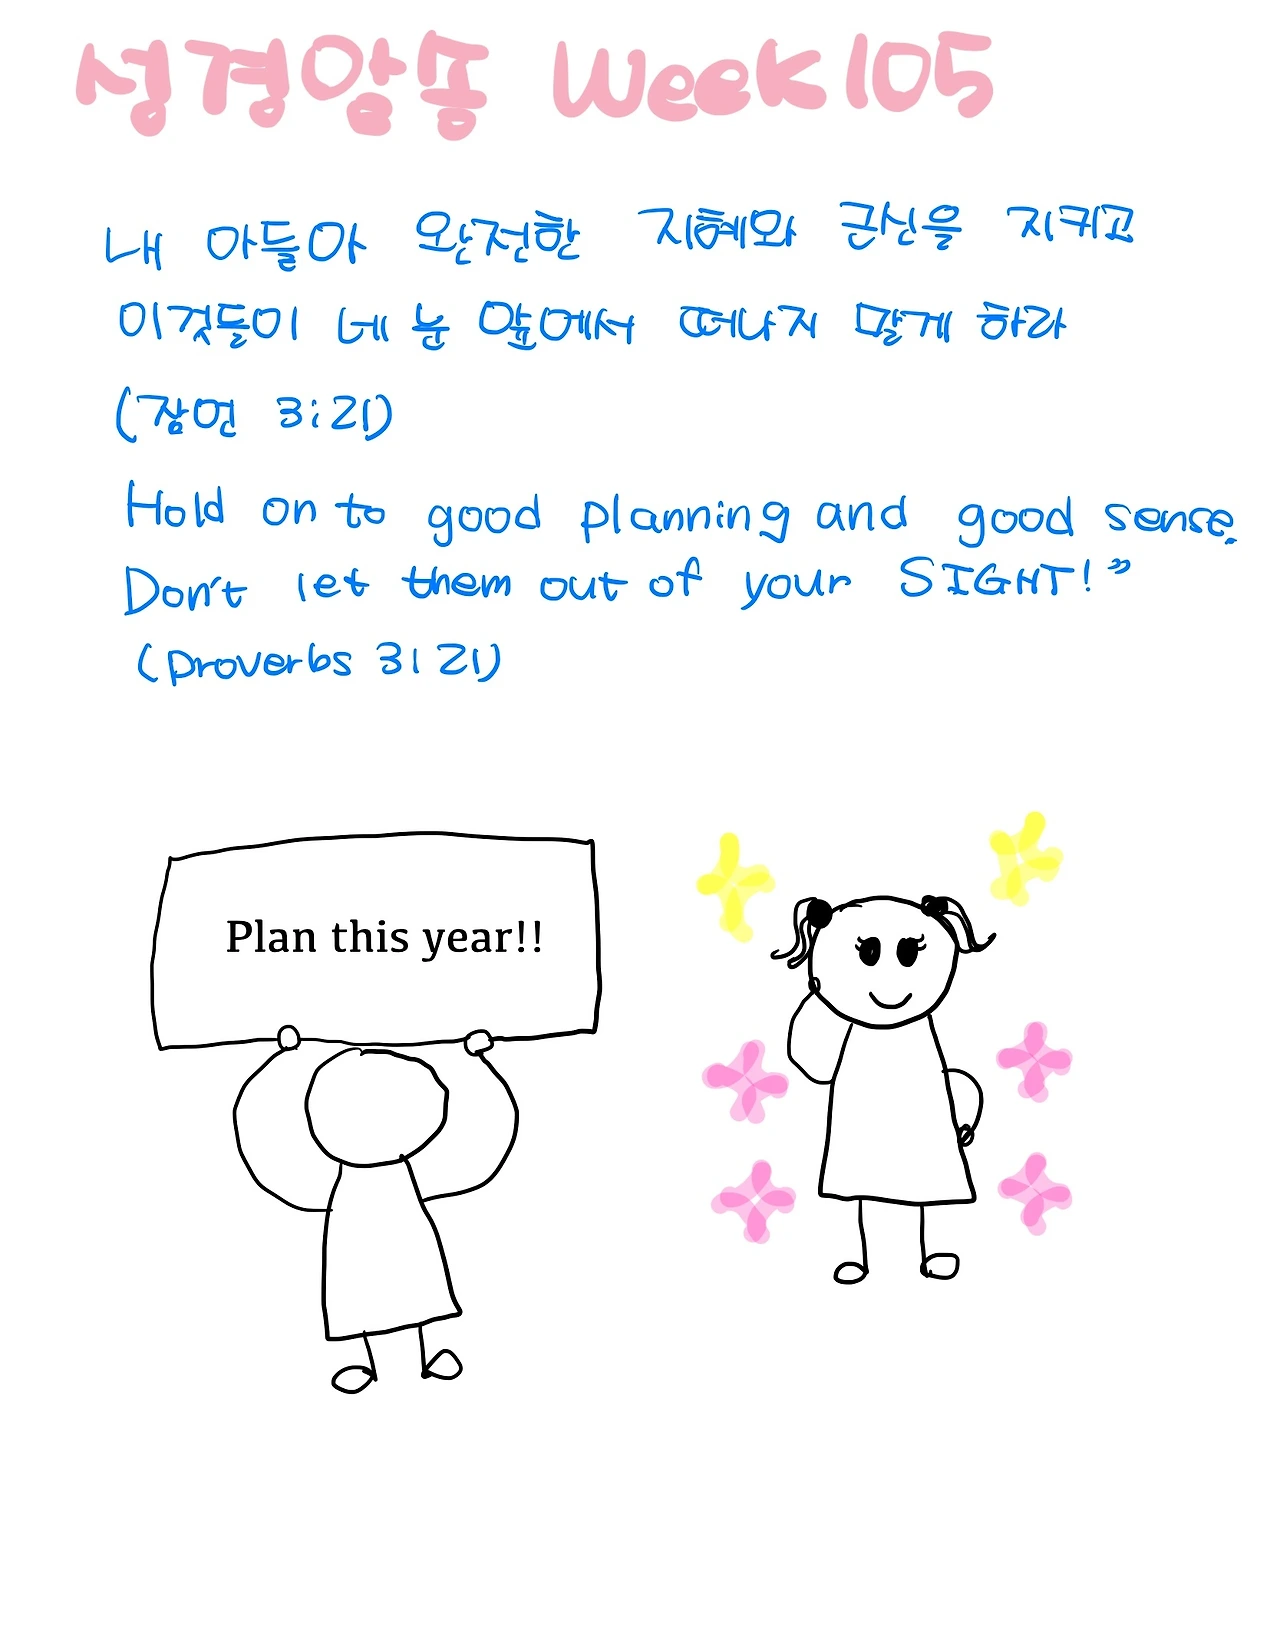 성경암송 Week105
내 아들아 완전한 지혜와 근신을 지키고
이것들이 네 눈 앞에서 떠나지 말게 하라
(잠언 3:21)
Hold on to good planning and good sense.
Don't let them out of your SIGHT!”
(Proverbs 3:21)
Plan this year!!